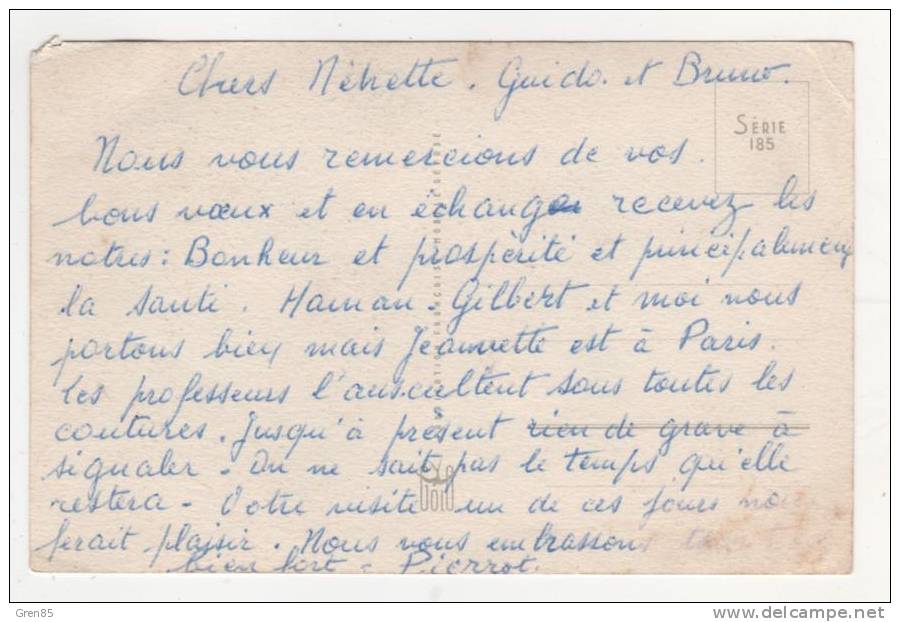 Chers Nénette. Guido. et Bruno.
SÉRIE
185
Nous vous remercions de vos.
bons vœux et en échange recevez les
notres: Bonheur et prospérité et principalement
la santé. Maman. Gilbert et moi nous
portons bien mais Jeannette est à Paris.
Les professeurs l'auscultent sous toutes les
coutures. Jusqu'à présent rien de grave à
signaler - On ne sait pas le temps qu'elle
restera - Votre visite un de ces jours nous
ferait plaisir. Nous vous embrassons
bien fort - Pierrot.
Gren85
http://www.delcampe.net